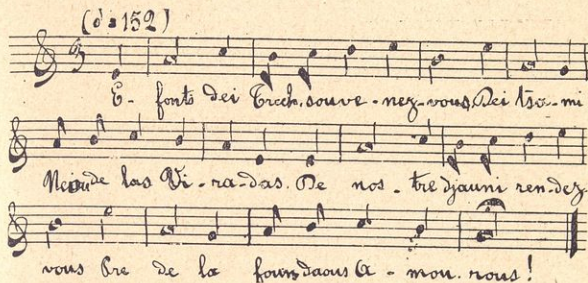 (♩ = 152)
E - fonts dei Trech, souve - nez-vous, Dei tsa - mi
Neiu de las Vi - ra - das. De nos - tre djauni ren - dez -
vous Pre de la foun daous A - mou - rous!